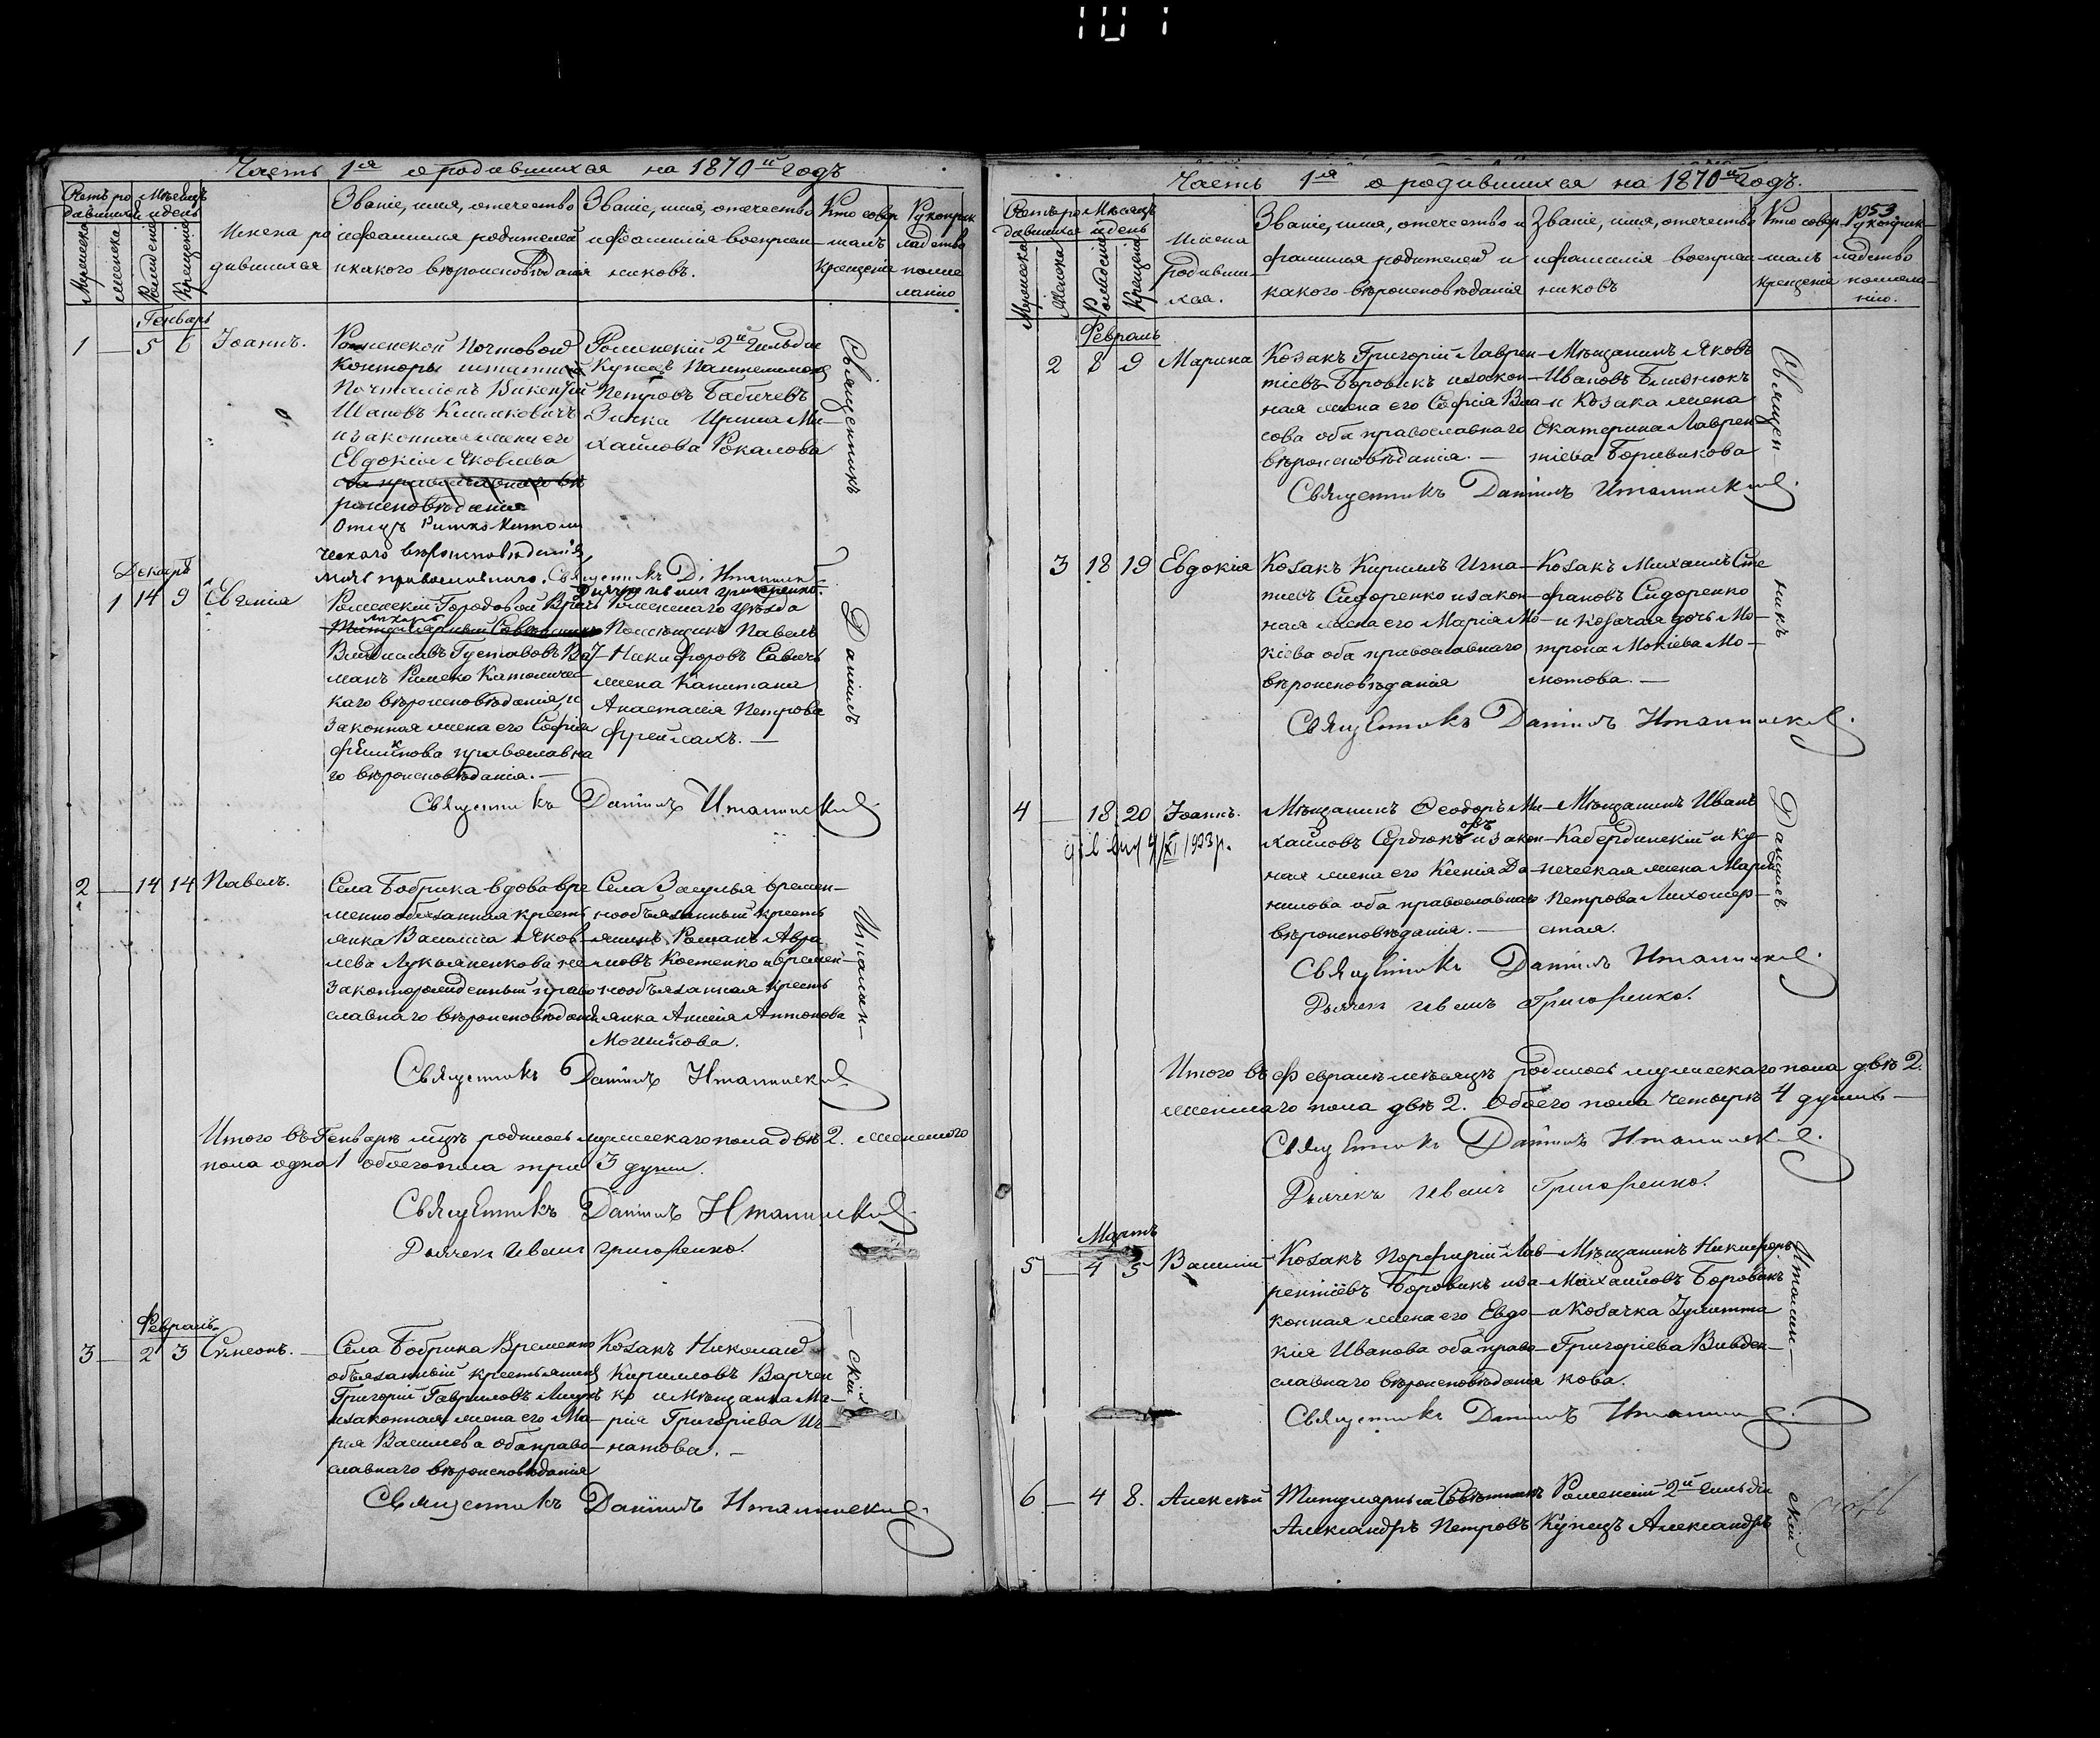 Часть 1я о родившихся на 1870й годъ
Счетъ ро
дившихся
Мѣсяцъ
и день
Мужеска
Женска
Рожденія
Крещенія
Имена ро
дившихся
Званіе, имя, отечество
и фамилія родителей
и какого вѣроисповѣданія
Званіе, имя, отечество
и фамилія воспріем-
никовъ.
Кто совер
шалъ
крещеніе
Рукоприк
ладство
по же
ланію
Генварь
1 — 5 6 Іоаннъ.
Роменской Почтовой
Конторы
Почталіонъ Викентій
и законная жена его
Евдокія Яковлева
роисповѣданія
Отецъ Римско-Католи
ческаго вѣроисповѣданія,
мать православнаго.
Роменскій 2й Гильдіи
Купецъ Пантелимонъ
Петровъ Бабичевъ
Ирина Ми-
хайлова Рокалова
Священникъ
Декабрь
1 14 9 Евгенія
Роменскій Городовой Врачъ
лекарь
Густавовъ
Римско Католичес-
каго вѣроисповѣданія, и
Законная жена его Софія
православна
го вѣроисповѣданія. —
Роменскаго уѣзда
Помѣщикъ Павелъ
Никифоровъ Савичъ
жена Капитана
Анастасія Петрова
Даніилъ
Священникъ Даніилъ Италинскій
2 — 14 14 Павелъ.
Села Бобрика вдова вре
менно обязанная кресть
янка Василиса Яков-
лева Лукьяненкова не
законнорожденный право
славнаго вѣроисповѣданія
Села Засулья времен-
нообязанный кресть
янинъ Романъ Авра
мовъ Костенко и времен-
нообязанная кресть
янка Анисія Антонова
Италин-
Священникъ Даніилъ Италинскій
Итого въ Генварѣ мцѣ родилось мужескаго пола двѣ 2. женскаго
пола одна 1 обоего пола три 3 души.
Священникъ Даніилъ Италинскій
Дьячекъ Иванъ Григоренко.
Февраль
3 — 2 3 Сѵмеонъ. —
Села Бобрика Временно
обязанный крестьянинъ
Григорій Гавриловъ
и законная жена его Ма-
рія Василіева оба право-
славнаго вѣроисповѣданія
Козакъ Николай
Кирилловъ Варчен
ко и Мѣщанка Ма-
рія Григоріева Иг-
натова. —
-скій
Священникъ Даніилъ Италинскій
Часть 1я о родившихся на 1870й годъ.
53
Счетъ ро
дившихся
Мѣсяцъ
и день
Мужеска
Женска
Рожденія
Крещенія
Имена
родивши-
хся.
Званіе, имя, отечество и
фамилія родителей и
какого вѣроисповѣданія
Званіе, имя, отечество
и фамилія воспріем-
никовъ
Кто совер-
шалъ
крещеніе
Рукоприк-
ладство
по жела-
нію.
Февраль
2 8 9 Марина
Козакъ Григорій Лаврен-
тіевъ Боровикъ и закон-
ная жена его Софія Вла-
сова оба православнаго
вѣроисповѣданія. —
Мѣщанинъ Яковъ
Ивановъ Близнюкъ
и Козака жена
Екатерина Лаврен
тіева Боривикова
Священ-
Священникъ Даніилъ Италинскій
3 18 19 Евдокія
Козакъ Кирилъ Игна-
тіевъ Сидоренко и закон-
ная жена его Марія Мо-
кіева оба православнаго
вѣроисповѣданія
Козакъ Михаилъ Сте
фановъ Сидоренко
и козачая дочь Мо-
трона Мокіева Мо-
мотова. —
никъ
Священникъ Даніилъ Италинскій
4 — 18 20 Іоаннъ.
1923 р.
Мѣщанинъ Ѳеодоръ Ми-
хайловъ Сердюковъ и закон-
ная жена его Ксенія Да-
нилова оба православнаго
вѣроисповѣданія. —
Мѣщанинъ Иванъ
Кабердинскій и ку-
печеская жена Марія
Петрова Лихошер-
стая.
Даніилъ
Священникъ Даніилъ Италинскій
Дьячекъ Иванъ Григоренко.
Итого въ Февралѣ мѣсяцѣ родилось мужескаго пола двѣ 2.
женскаго пола двѣ 2. Обоего пола четырѣ 4 душъ —
Священникъ Даніилъ Италинскій
Дьячекъ Иванъ Григоренко.
Мартъ
5 — 4 5 Василій
Козакъ Порфирій Лав-
рентіевъ Боровикъ и за-
конная жена его Евдо-
кія Иванова оба право-
славнаго вѣроисповѣданія
Мѣщанинъ Никифоръ
Михайловъ Боровикъ
и Козачка Іулитта
Григоріева Вивден-
кова.
Италин-
Священникъ Даніилъ Италинскій
6 — 4 8. Алексѣй
Титулярный Совѣтникъ
Александръ Петровъ
Роменскій 2й Гильдіи
Купецъ Александръ
скій